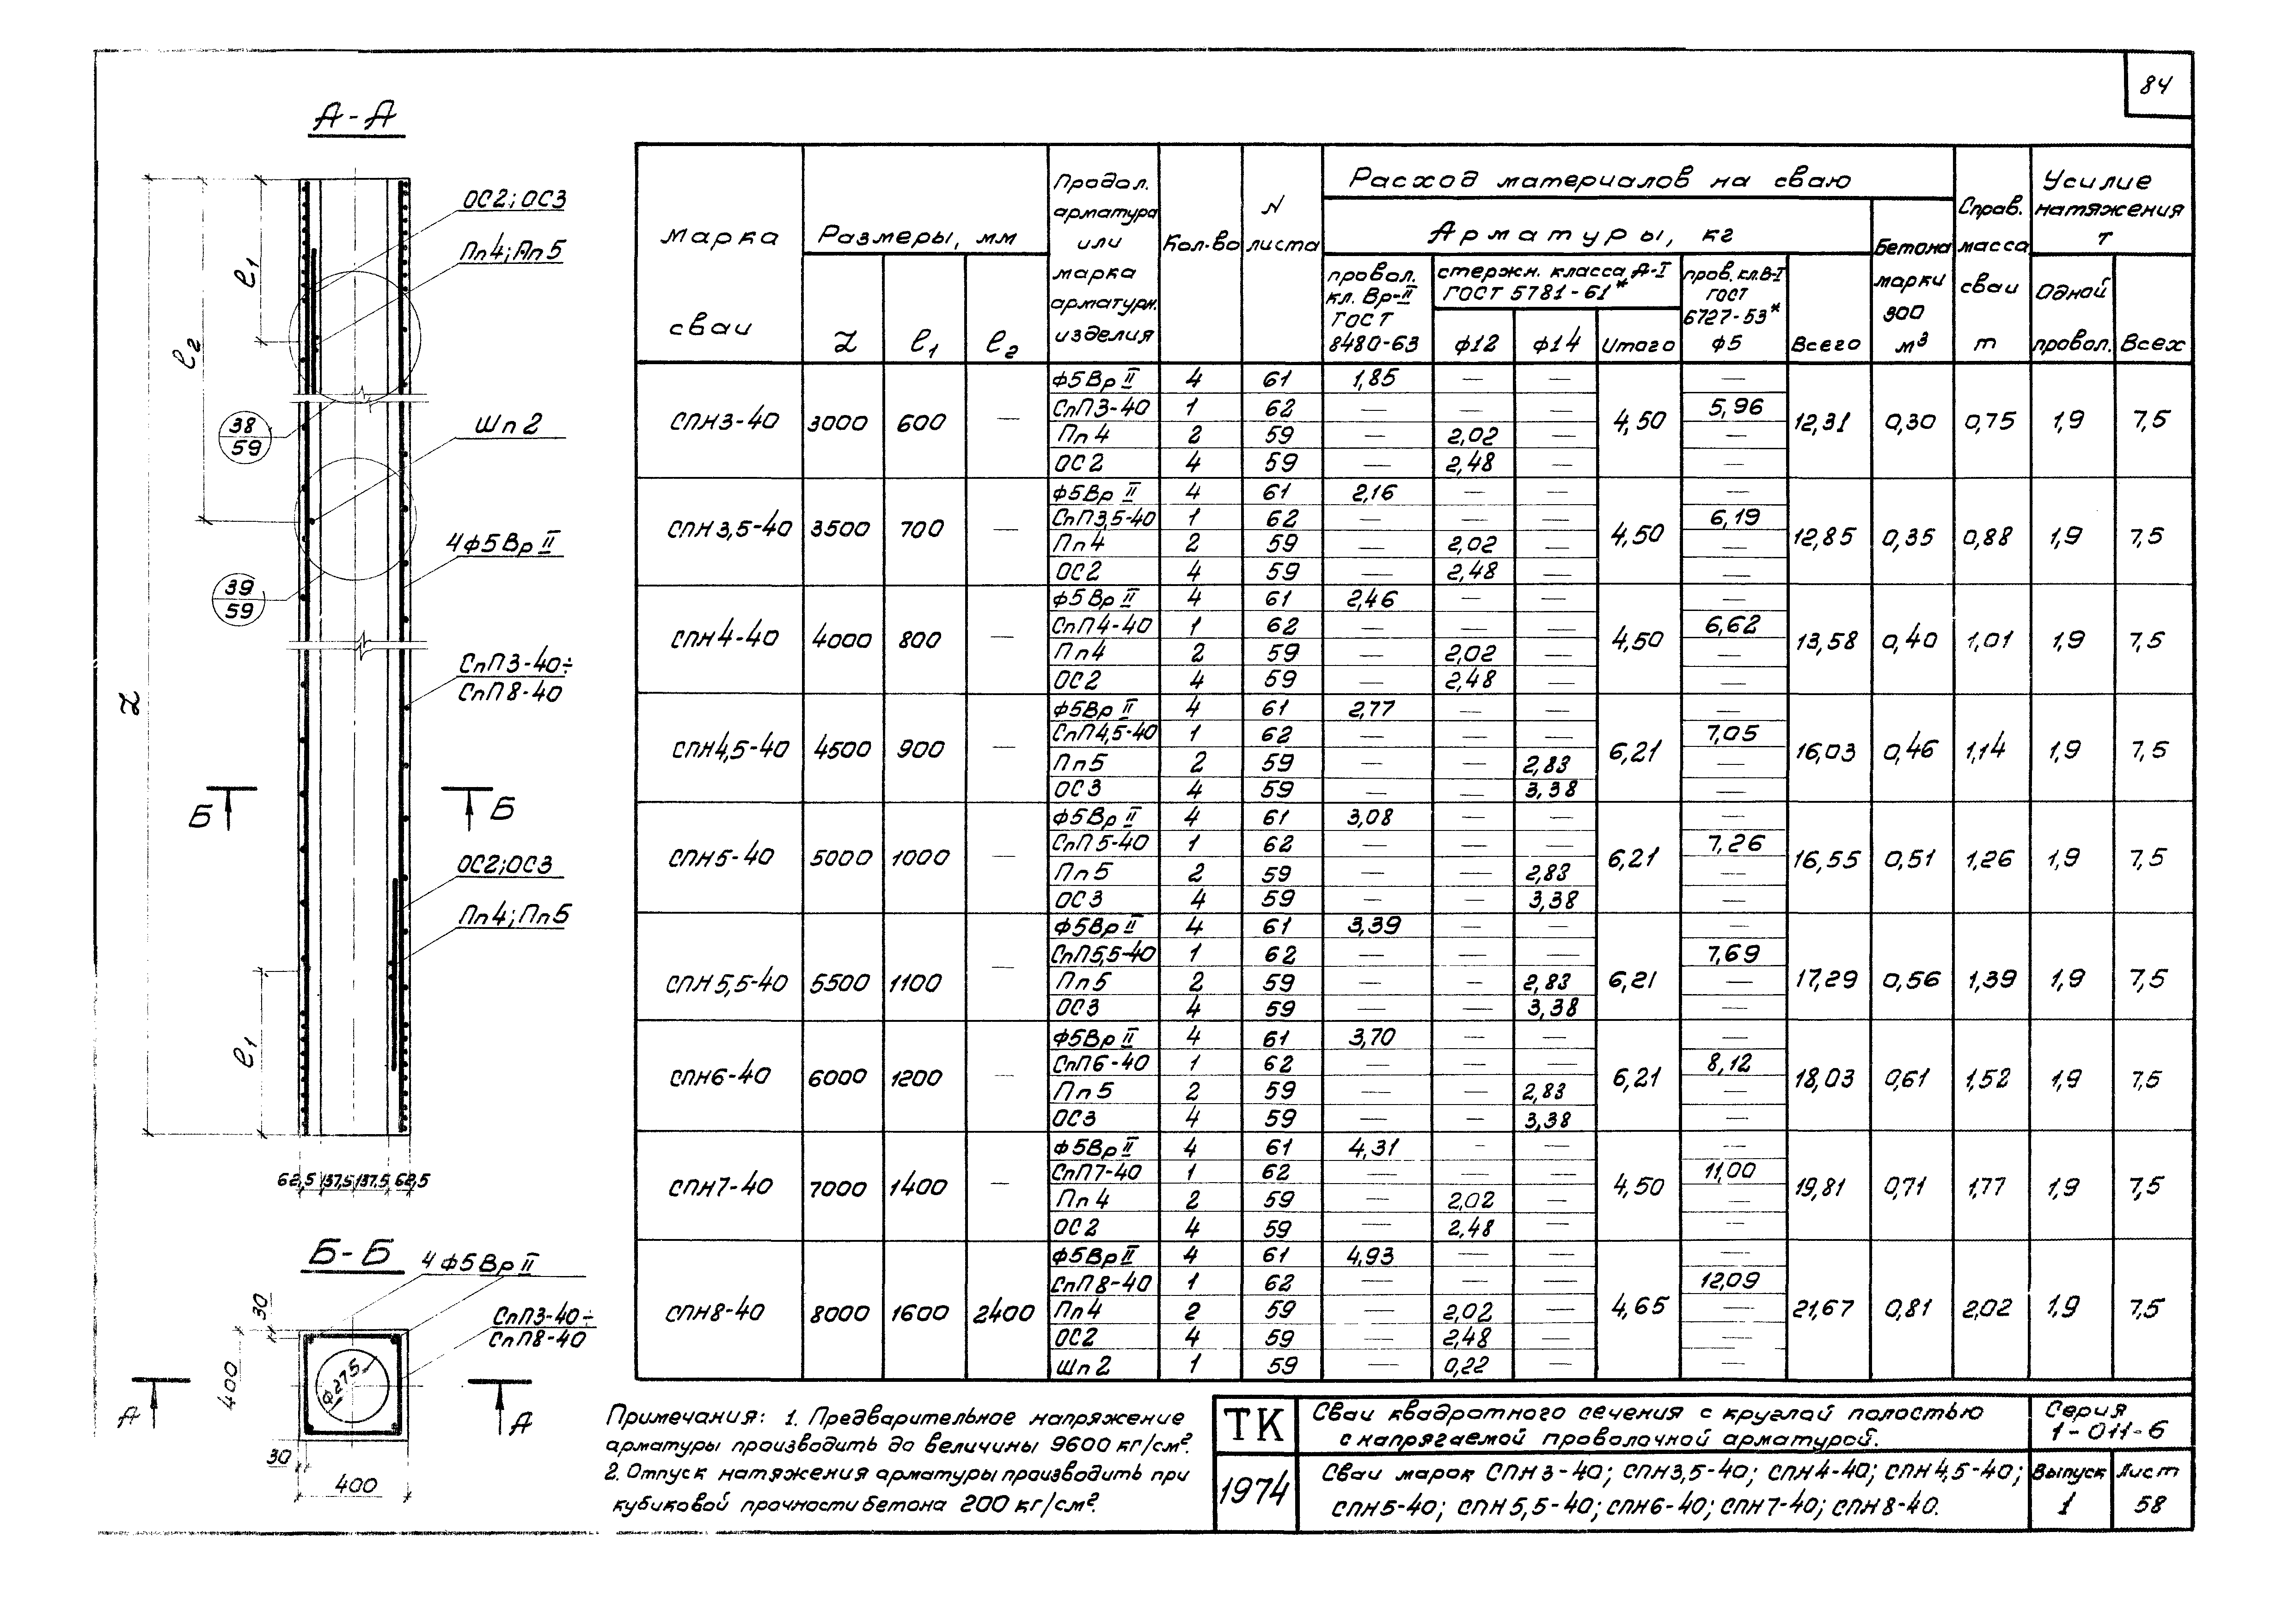 84
А-А
ОС2; ОС3
Пп4; Пп5
ℓ1
ℓ2
38
59
Шп2
4ф5ВрII
39
59
СпП3-40÷
СпП8-40
L
Б
Б
ОС2; ОС3
Пп4; Пп5
ℓ1
62,5 137,5 137,5 62,5
Б-Б
4ф5ВрII
30
СпП3-40÷
СпП8-40
400
ф275
А
А
30
400
Марка сваи | Размеры, мм | Продол. арматура или марка арматурн. изделия | Кол-во | N листа | Расход материалов на сваю | Справ. масса сваи т | Усилие натяжения т
Арматуры, кг | Бетона марки 300 м³
L | ℓ1 | ℓ2 | провол. кл. Вр-II ГОСТ 8480-63 | стержн. класса А-I ГОСТ 5781-61* | пров. кл. В-I ГОСТ 6727-53* ф5 | Всего | Одной провол. | Всех
ф12 | ф14 | Итого
СПН3-40 | 3000 | 600 | — | ф5ВрII | 4 | 61 | 1,85 | — | — | 4,50 | — | 12,31 | 0,30 | 0,75 | 1,9 | 7,5
СпП3-40 | 1 | 62 | — | — | — | 5,96
Пп4 | 2 | 59 | — | 2,02 | — | —
ОС2 | 4 | 59 | — | 2,48 | — | —
СПН3,5-40 | 3500 | 700 | — | ф5ВрII | 4 | 61 | 2,16 | — | — | 4,50 | — | 12,85 | 0,35 | 0,88 | 1,9 | 7,5
СпП3,5-40 | 1 | 62 | — | — | — | 6,19
Пп4 | 2 | 59 | — | 2,02 | — | —
ОС2 | 4 | 59 | — | 2,48 | — | —
СПН4-40 | 4000 | 800 | — | ф5ВрII | 4 | 61 | 2,46 | — | — | 4,50 | — | 13,58 | 0,40 | 1,01 | 1,9 | 7,5
СпП4-40 | 1 | 62 | — | — | — | 6,62
Пп4 | 2 | 59 | — | 2,02 | — | —
ОС2 | 4 | 59 | — | 2,48 | — | —
СПН4,5-40 | 4500 | 900 | — | ф5ВрII | 4 | 61 | 2,77 | — | — | 6,21 | — | 16,03 | 0,46 | 1,14 | 1,9 | 7,5
СпП4,5-40 | 1 | 62 | — | — | — | 7,05
Пп5 | 2 | 59 | — | — | 2,83 | —
ОС3 | 4 | 59 | — | — | 3,38 | —
СПН5-40 | 5000 | 1000 | — | ф5ВрII | 4 | 61 | 3,08 | — | — | 6,21 | — | 16,55 | 0,51 | 1,26 | 1,9 | 7,5
СпП5-40 | 1 | 62 | — | — | — | 7,26
Пп5 | 2 | 59 | — | — | 2,83 | —
ОС3 | 4 | 59 | — | — | 3,38 | —
СПН5,5-40 | 5500 | 1100 | — | ф5ВрII | 4 | 61 | 3,39 | — | — | 6,21 | — | 17,29 | 0,56 | 1,39 | 1,9 | 7,5
СпП5,5-40 | 1 | 62 | — | — | — | 7,69
Пп5 | 2 | 59 | — | — | 2,83 | —
ОС3 | 4 | 59 | — | — | 3,38 | —
СПН6-40 | 6000 | 1200 | — | ф5ВрII | 4 | 61 | 3,70 | — | — | 6,21 | — | 18,03 | 0,61 | 1,52 | 1,9 | 7,5
СпП6-40 | 1 | 62 | — | — | — | 8,12
Пп5 | 2 | 59 | — | — | 2,83 | —
ОС3 | 4 | 59 | — | — | 3,38 | —
СПН7-40 | 7000 | 1400 | — | ф5ВрII | 4 | 61 | 4,31 | — | — | 4,50 | — | 19,81 | 0,71 | 1,77 | 1,9 | 7,5
СпП7-40 | 1 | 62 | — | — | — | 11,00
Пп4 | 2 | 59 | — | 2,02 | — | —
ОС2 | 4 | 59 | — | 2,48 | — | —
СПН8-40 | 8000 | 1600 | 2400 | ф5ВрII | 4 | 61 | 4,93 | — | — | 4,65 | — | 21,67 | 0,81 | 2,02 | 1,9 | 7,5
СпП8-40 | 1 | 62 | — | — | — | 12,09
Пп4 | 2 | 59 | — | 2,02 | — | —
ОС2 | 4 | 59 | — | 2,48 | — | —
Шп2 | 1 | 59 | — | 0,22 | — | —
Примечания: 1. Предварительное напряжение
арматуры производить до величины 9600 кг/см².
2. Отпуск натяжения арматуры производить при
кубиковой прочности бетона 200 кг/см².
ТК
1974
Сваи квадратного сечения с круглой полостью
с напрягаемой проволочной арматурой.
Серия
1-011-6
Сваи марок СПН3-40; СПН3,5-40; СПН4-40; СПН4,5-40;
СПН5-40; СПН5,5-40; СПН6-40; СПН7-40; СПН8-40.
Выпуск
1
Лист
58